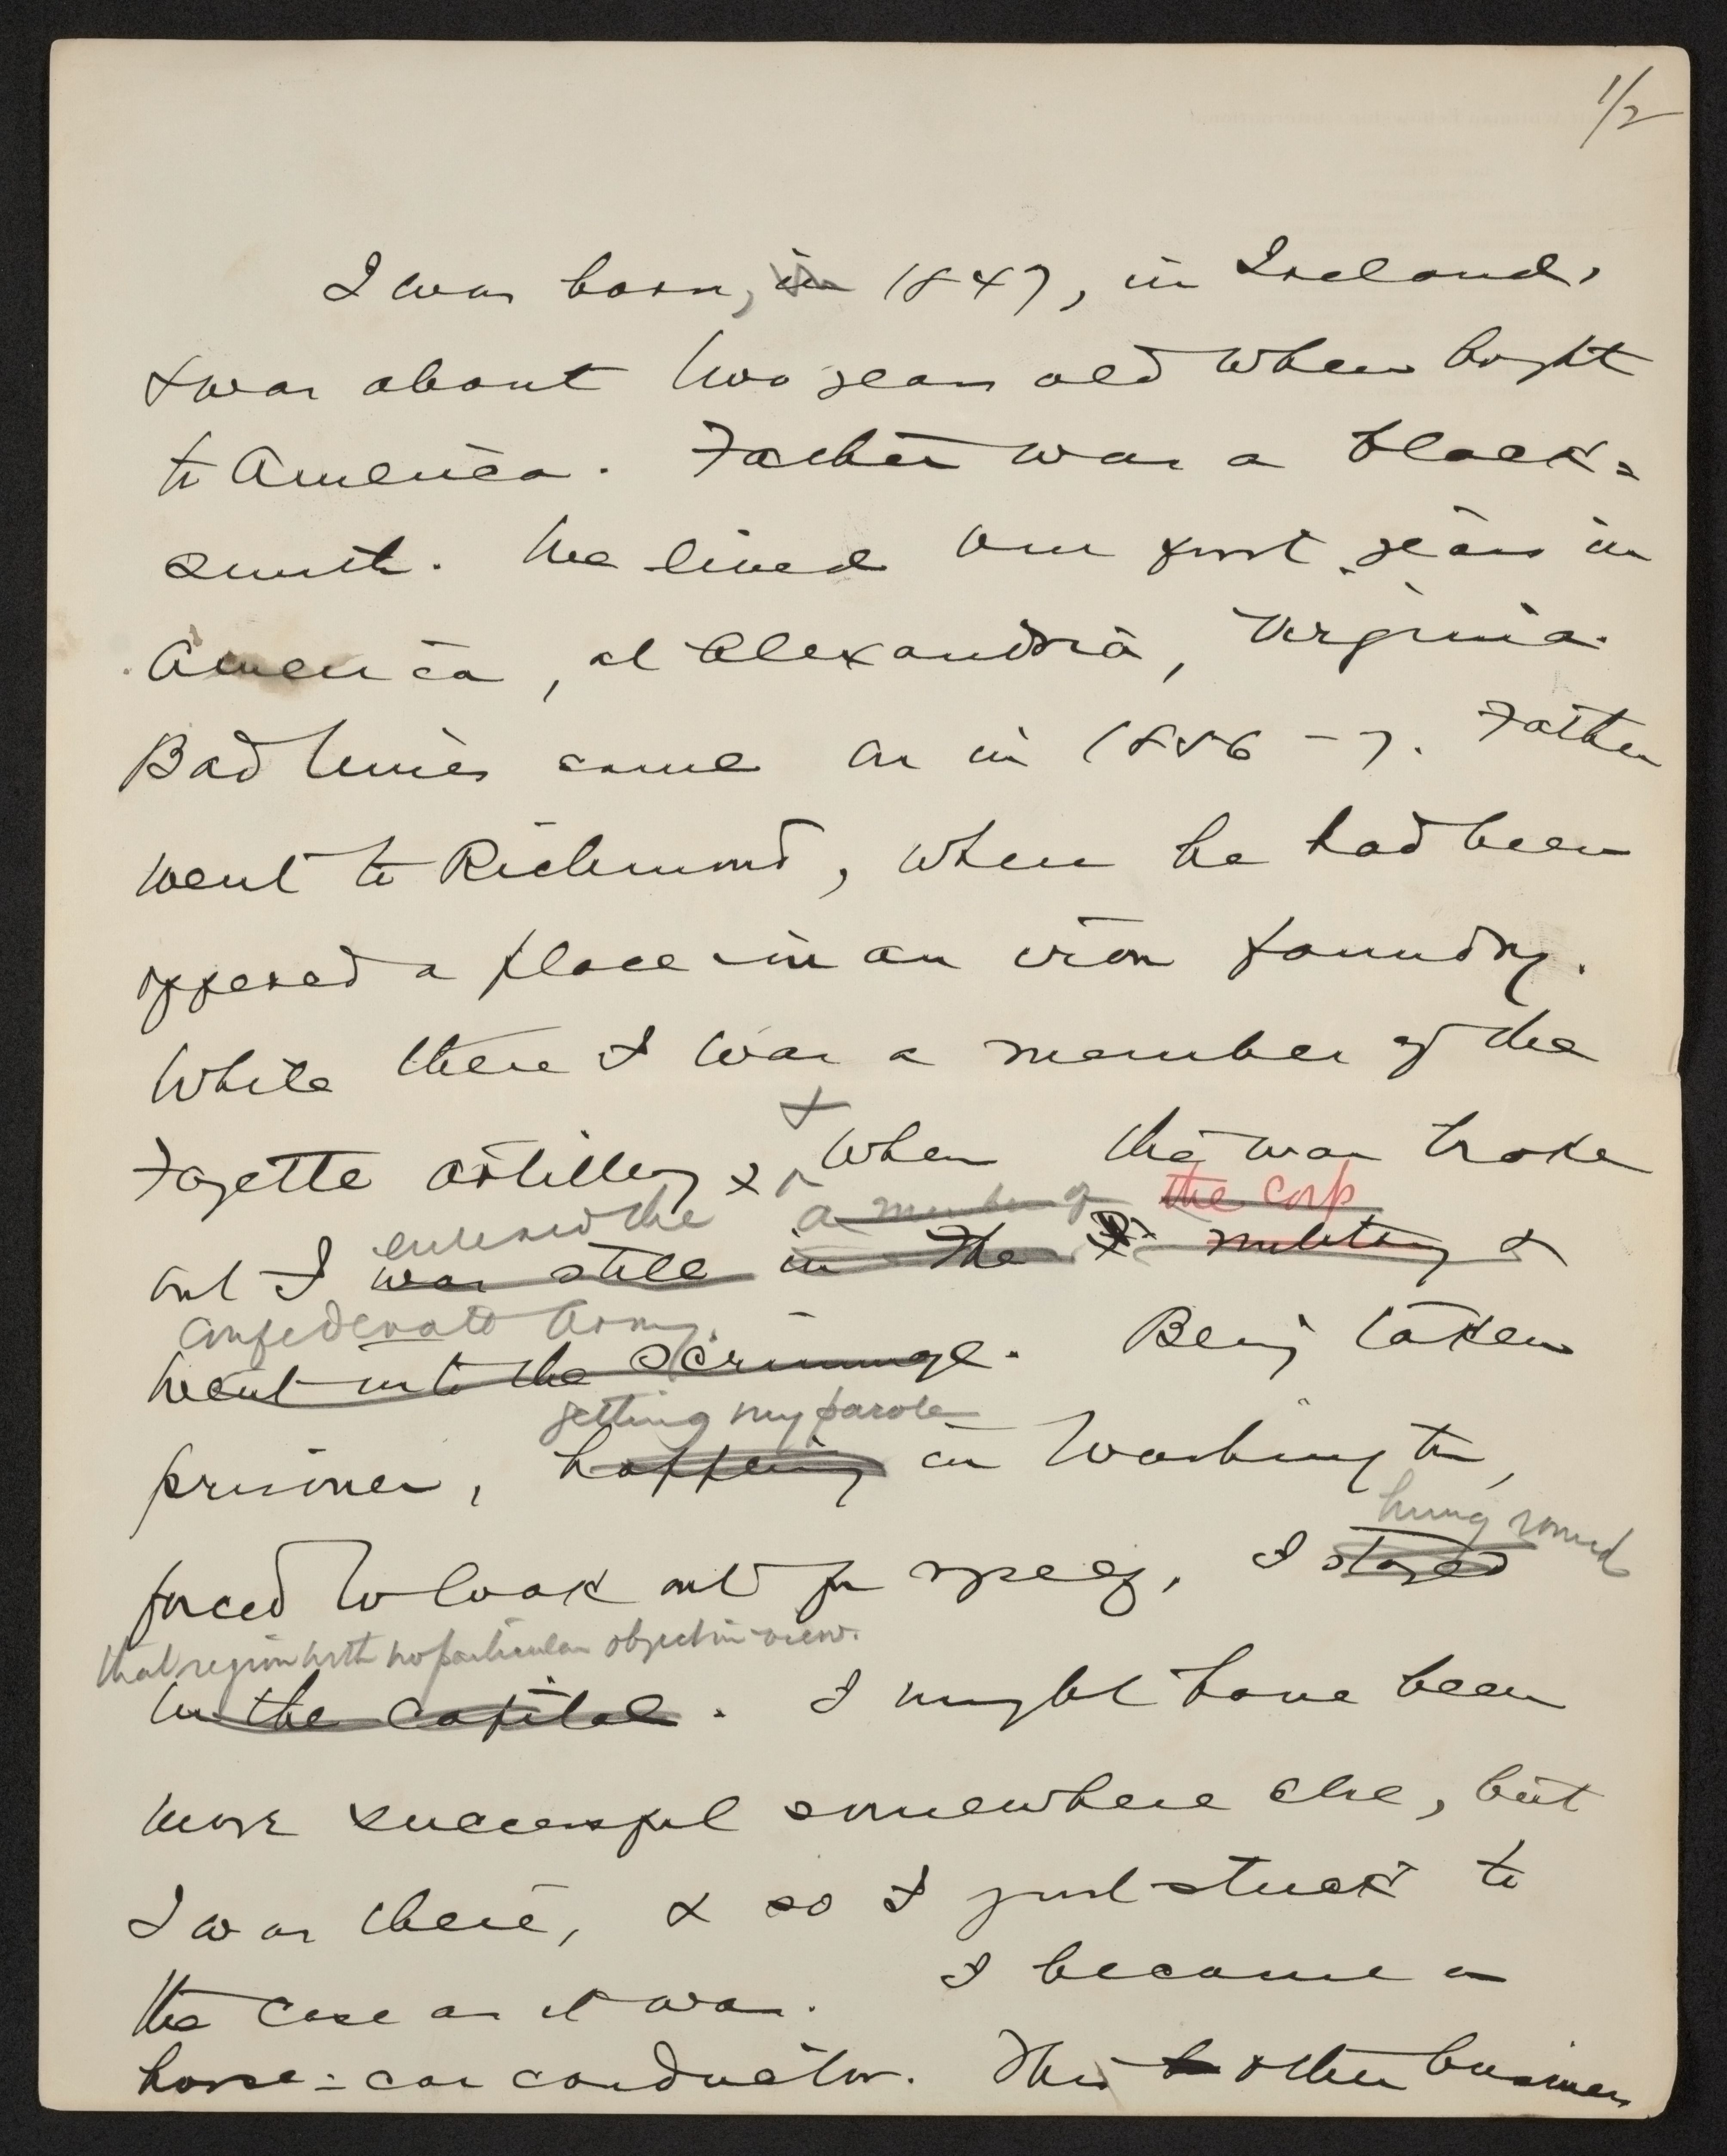 1/2
I was born, in 1847, in Ireland,
& was about two years old when bro't
to America. Father was a black=
smith. We lived our first years in
America, at Alexandria, Virginia.
Bad times came on in 1856-7. Father
went to Richmond, where he had been
offered a place in an iron foundry.
While there I was a member of the
Fayette artillery & & when the war broke
entered the a member of the corp
out I was still in the military &
Confederate Army.
went into the scrimmage. Being taken
getting my parole
prisoner, happening in Washington,
hung round
forced to look out for myself, I stayed
that region with no particular object in view.
in the capital. I might have been
more successful somewhere else, but
I was there, & so I just stuck to
the case as it was. I became a
horse=car conductor. This & other business